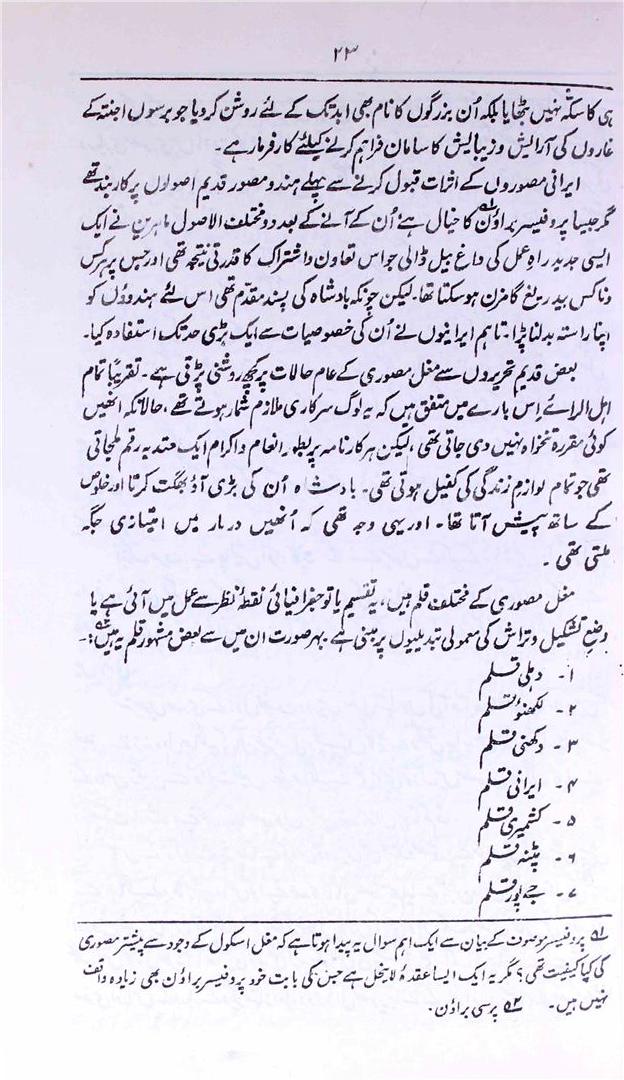 ۲۳
ہی کا سکّہ نہیں بٹھایا بلکہ اُن بزرگوں کا نام بھی ابد تک کے لئے روشن کر دیا جو برسوں اجنتہ کے
غاروں کی آرایش و زیبایش کا سامان فراہم کرنے کیلئے کارفرما رہے۔
ایرانی مصوروں کے اثرات قبول کرنے سے پہلے ہندو مصور قدیم اصولوں پر کاربند تھے
مگر جیسا پروفیسر براؤن کا خیال ہے اُن کے آنے کے بعد دو مختلف الاصول ماہرین نے ایک
ایسی جدید راہِ عمل کی داغ بیل ڈالی جو اس تعاون و اشتراک کا قدرتی نتیجہ تھی اور جس پر ہر کس
و ناکس بیدریغ گامزن ہو سکتا تھا۔ لیکن چونکہ بادشاہ کی پسند مقدّم تھی اس لئے ہندوؤں کو
اپنا راستہ بدلنا پڑا۔ تاہم ایرانیوں نے اُن کی خصوصیات سے ایک بڑی حد تک استفادہ کیا۔
بعض قدیم تحریروں سے مغل مصوری کے عام حالات پر کچھ روشنی پڑتی ہے۔ تقریباً تمام
اہل الرائے اِس بارے میں متفق ہیں کہ یہ لوگ سرکاری ملازم شمار ہوتے تھے، حالانکہ انھیں
کوئی مقررہ تنخواہ نہیں دی جاتی تھی، لیکن ہر کارنامہ پر بطور انعام و اکرام ایک معتدبہ رقم ملجاتی
تھی جو تمام لوازمِ زندگی کی کفیل ہوتی تھی۔ بادشاہ اُن کی بڑی آؤ بھگت کرتا اور خلوص
کے ساتھ پیش آتا تھا۔ اور یہی وجہ تھی کہ اُنھیں دربار میں امتیازی جگہ
ملتی تھی۔
مغل مصوری کے مختلف قلم ہیں، یہ تقسیم یا تو جغرافیائی نقطۂ نظر سے عمل میں آئی ہے یا
وضعِ تشکیل و تراش کی معمولی تبدیلیوں پر مبنی ہے بہرصورت ان میں سے بعض مشہور قلم یہ ہیں:۔
۱۔ دہلی قلم
۲۔ لکھنوئ قلم
۳۔ دکھنی قلم
۴۔ ایرانی قلم
۵۔ کشمیری قلم
۶۔ پٹنہ قلم
۷۔ جے پور قلم
۵۱ پروفیسر موصوف کے بیان سے ایک اہم سوال یہ پیدا ہوتا ہے کہ مغل اسکول کے وجود سے پیشتر مصوری
کی کیا کیفیت تھی؟ مگر یہ ایک ایسا عقدۂ لاینحل ہے جس کی بابت خود پروفیسر براؤن بھی زیادہ واقف
نہیں ہیں۔ ۵۲ پرسی براؤن۔